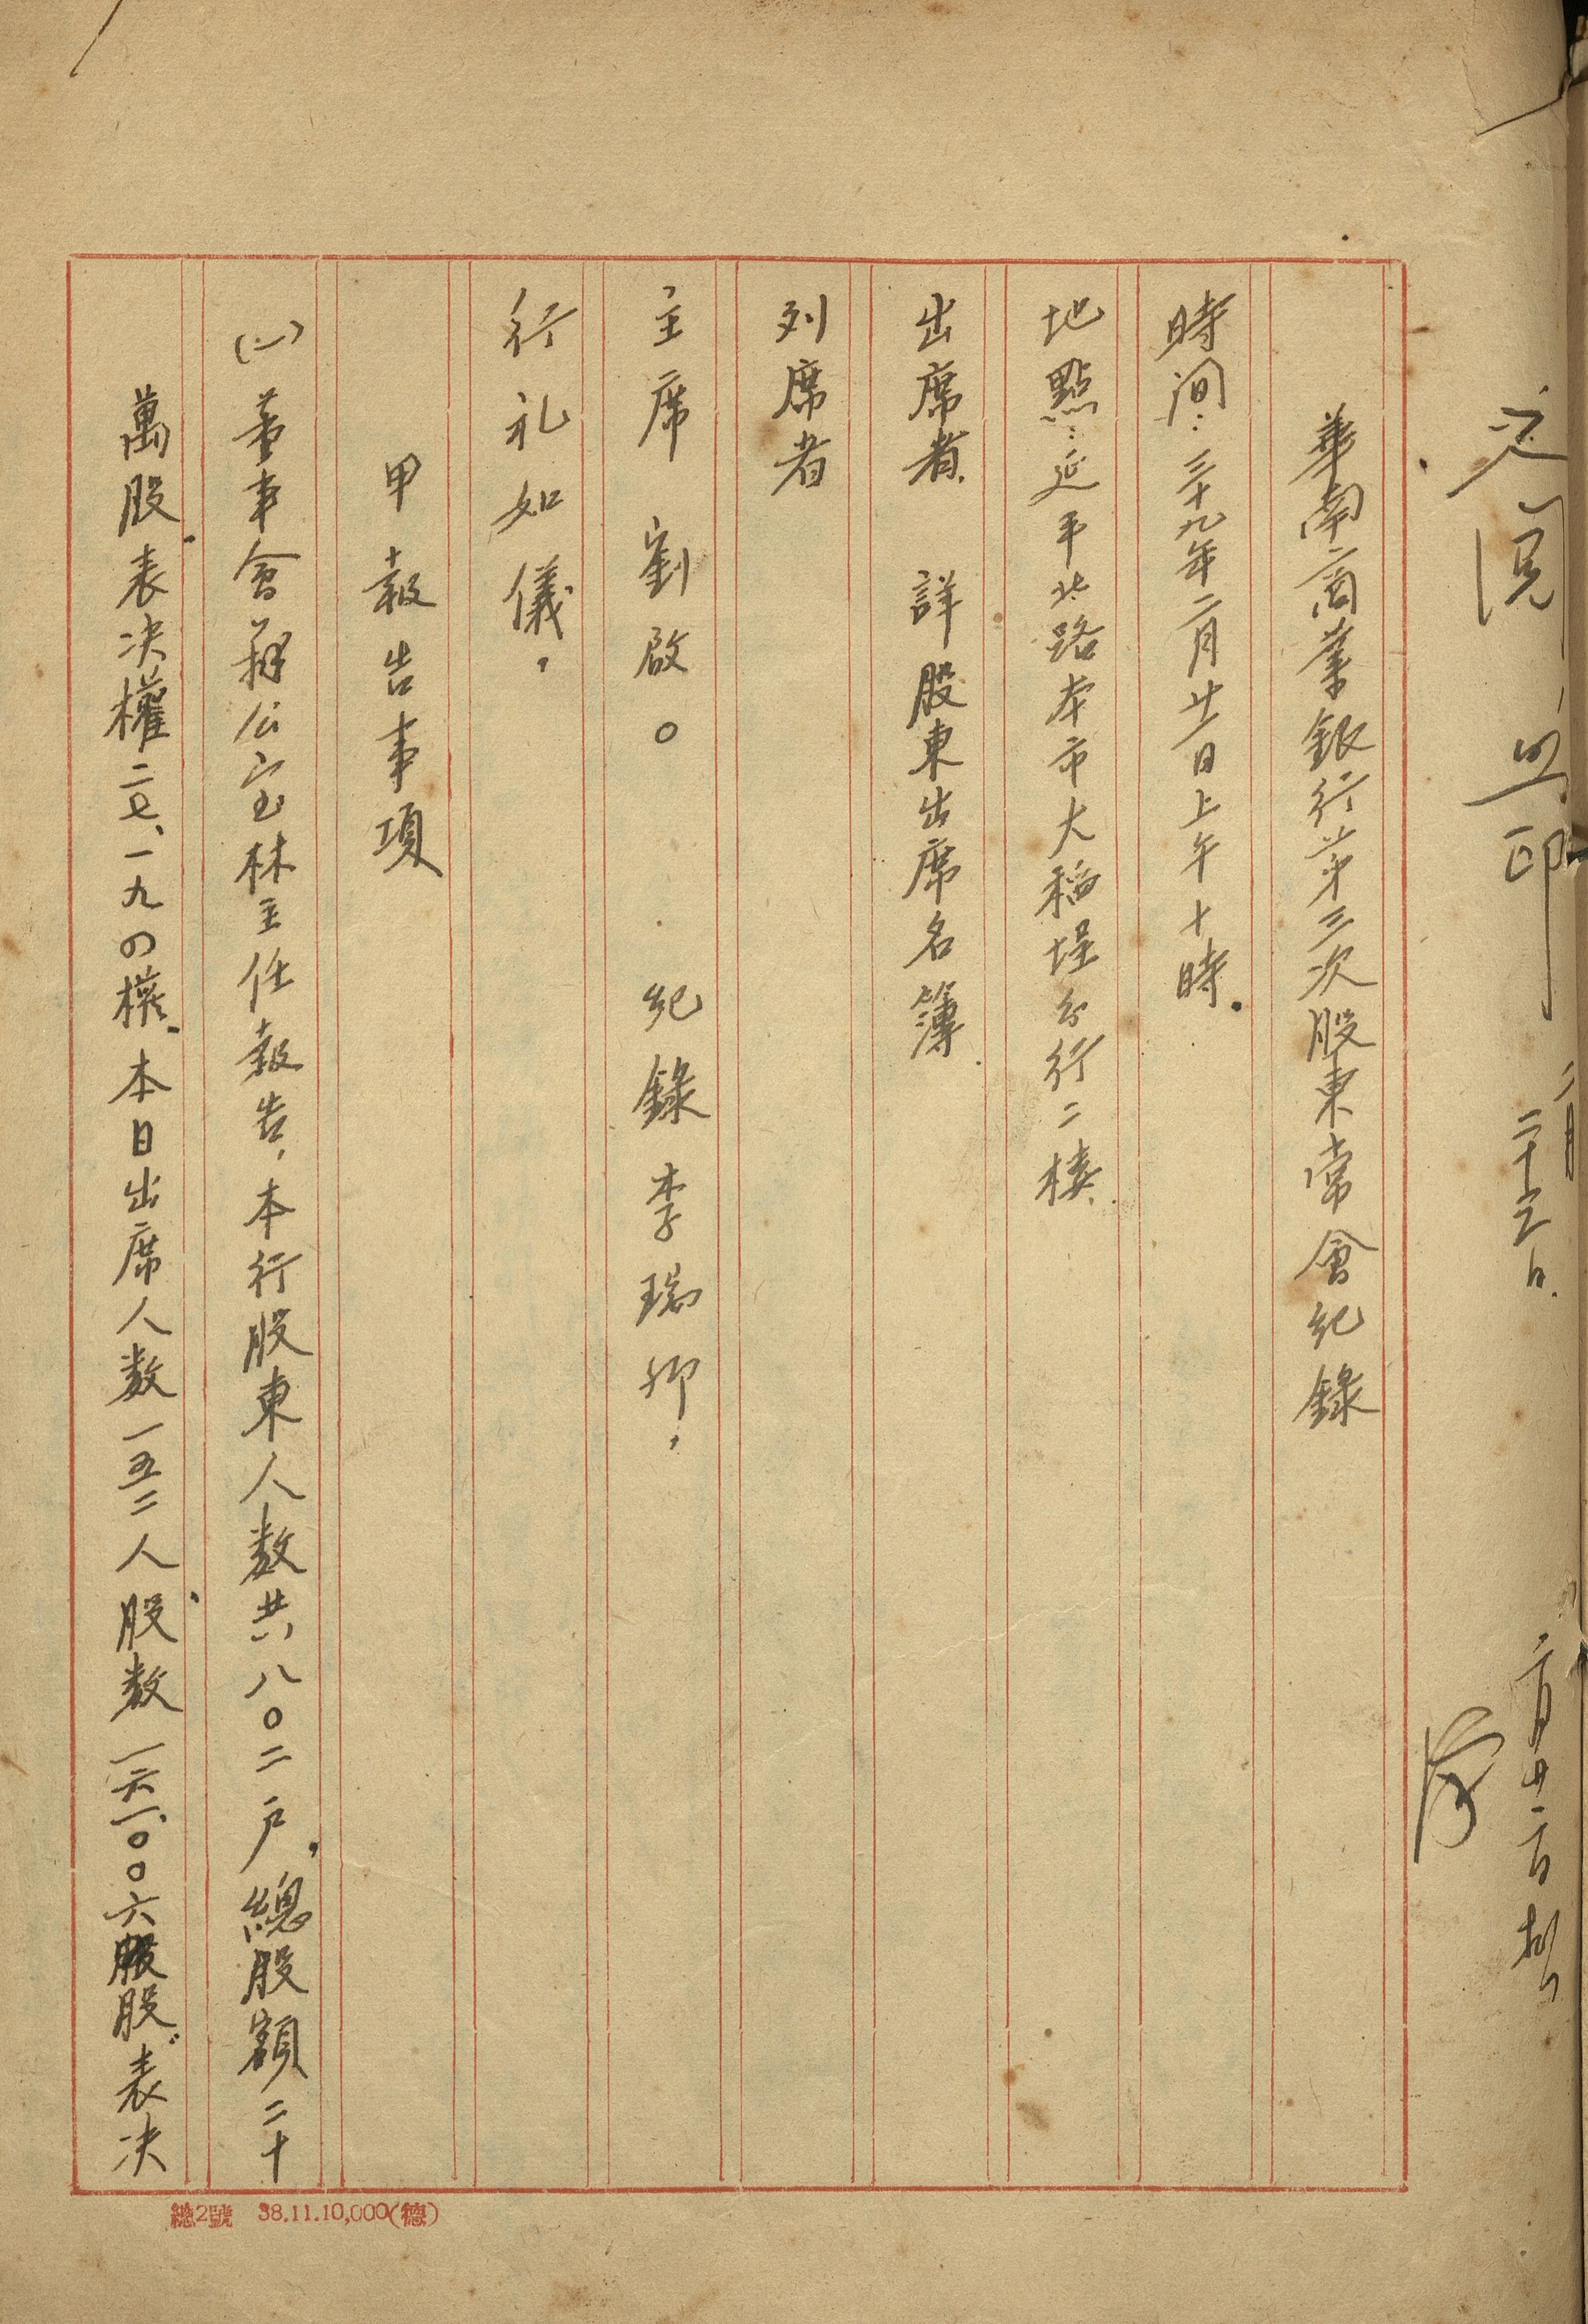 交閱並印
二月
二十三日
二月廿二日
華南商業銀行第三次股東常會紀錄
時间：三十九年二月廿一日上午十時.
地點：延平北路本市大稻埕分行二楼、
出席者、 詳股東出席名簿.
列席者
主席 劉啟。 紀錄 李瑞卿，
行礼如儀，
甲報告事項
(一)董事會務公室林主任報告，本行股東人数共八〇二户，總股額二十
萬股、表決權二七、一九四権、本日出席人数一五二人、股数一六一、〇〇六股、表決
總2號 38.11.10,000(德)